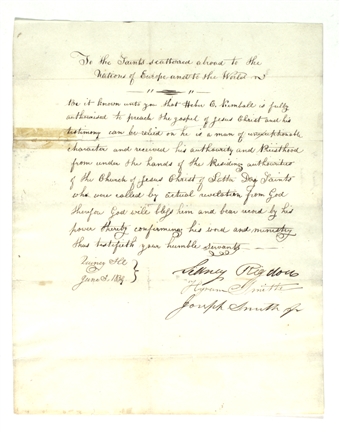 To the Saints scattered abroad to the
Nations of Europe and to the World
Be it known unto you that Heber C. Kimball is fully
authorised to preach the gospel of Jesus Christ and his
testimony can be relied on he is a man of
character and received his authourity and Preisthood
from under the hands of the Presiding authourities
of the Church of Jesus Christ of Latter Day Saints
who were called by actual revelation from God
therefor God will bless him and bear record by his
power thereby confirming his word and ministry
thus testifieth your humble servants
Quincy Ill
June 3, 1839
Sidney Rigdon
Hyrum Smith
Joseph Smith Jr